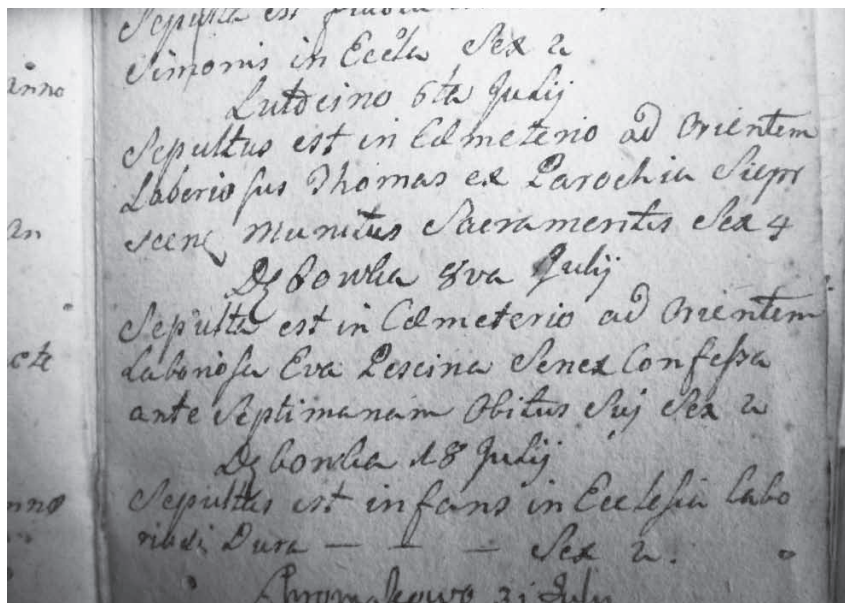 Sepulta est
Simonis in Eccla Sex 2
Lutocino 6ta Julij
Sepultus est in Cæmeterio ad Orientem
Laboriosus Thomas ex Parochia Siepr
scen munitus Sacramentis Sex 4
Dębowka 8va Julij
Sepulta est in Cæmeterio ad Orientem
Laboriosa Eva Pescina Senex Confessa
ante Septimanam Obitus Suj Sex 2
Dębowka 18 Julij
Sepultus est infans in Ecclesia Labo
riosi Dura — — — Sex 2.
31 Julij
anno
an
cte
nno